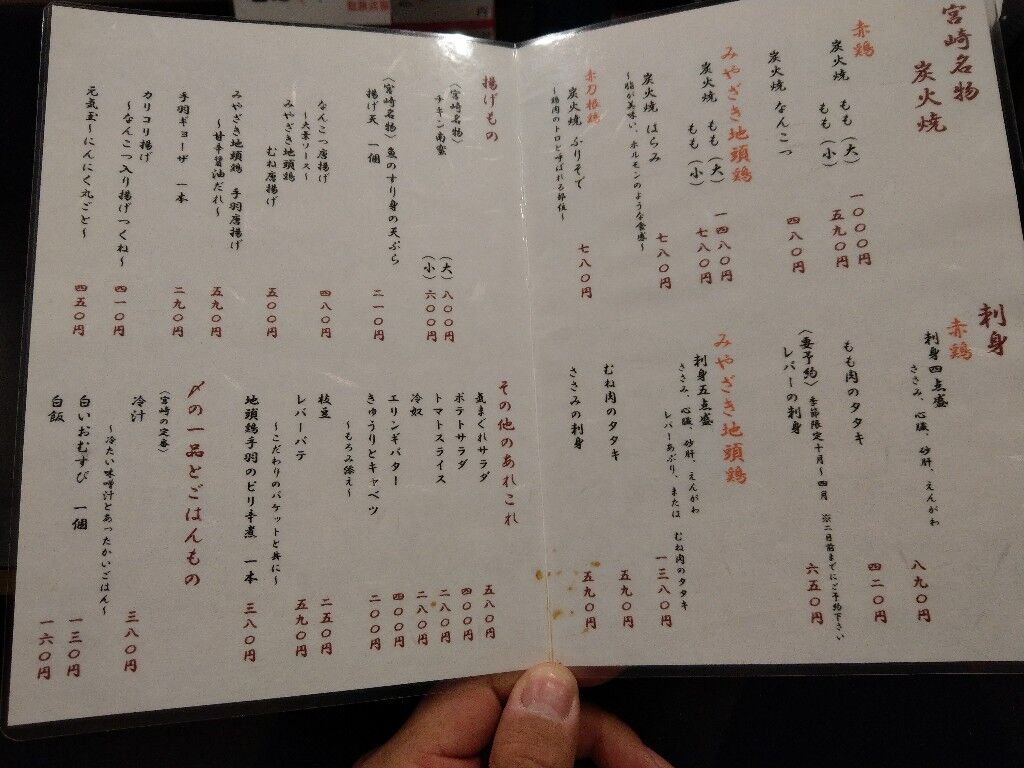 宮崎名物
炭火焼
赤鶏
炭火焼 もも(大) 一〇〇〇円
もも(小) 五九〇円
炭火焼 なんこつ 四八〇円
みやざき地頭鶏
炭火焼 もも(大) 一四八〇円
もも(小) 七八〇円
炭火焼 はらみ 七八〇円
~脂が美味い、ホルモンのような食感~
赤刀根鶏
炭火焼 ふりそで 七八〇円
~鶏肉のトロと呼ばれる部位~
刺身
赤鶏
刺身四点盛 八九〇円
ささみ、心臓、砂肝、えんがわ
もも肉のタタキ 四二〇円
(要予約)季節限定十月~四月 ※二日前までにご予約下さい
レバーの刺身 六五〇円
みやざき地頭鶏
刺身五点盛 一三八〇円
ささみ、心臓、砂肝、えんがわ
レバーあぶり、または むね肉のタタキ
むね肉のタタキ 五九〇円
ささみの刺身 五九〇円
揚げもの
(宮崎名物)
チキン南蛮 (大) 八〇〇円
(小) 六〇〇円
(宮崎名物)魚のすり身の天ぷら
揚げ天 一個 二一〇円
なんこつ唐揚げ 四八〇円
~大葉ソース~
みやざき地頭鶏
むね唐揚げ 五〇〇円
みやざき地頭鶏 手羽唐揚げ 五九〇円
~甘辛醤油だれ~
手羽ギョーザ 一本 二九〇円
カリコリ揚げ 四一〇円
~なんこつ入り揚げつくね~
元気玉~にんにく丸ごと~ 四五〇円
その他のあれこれ
気まぐれサラダ 五八〇円
ポテトサラダ 四〇〇円
トマトスライス 二八〇円
冷奴 二八〇円
エリンギバター 四〇〇円
きゅうりとキャベツ 二〇〇円
~もろみ添え~
枝豆 二五〇円
レバーパテ 五九〇円
~こだわりのバケットと共に~
地頭鶏手羽のピリ辛煮 一本 三八〇円
〆の一品とごはんもの
(宮崎の定番)
冷汁 三八〇円
~冷たい味噌汁とあったかいごはん~
白いおむすび 一個 一三〇円
白飯 一六〇円